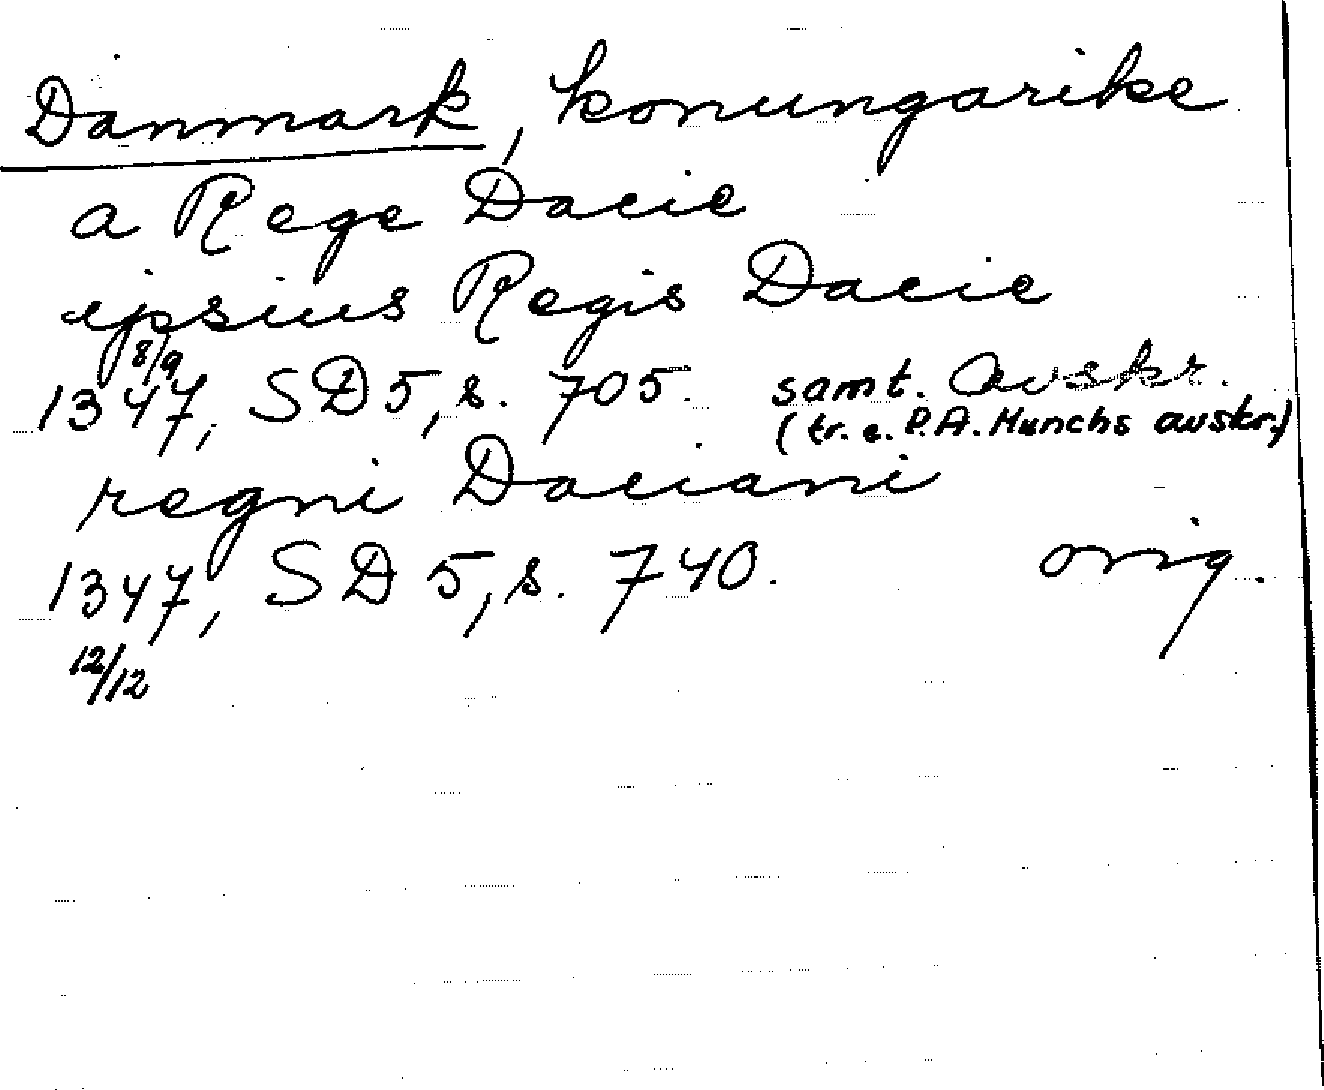 Danmark, konungarike
a Rege Dacie
ipsius Regis Dacie
8/9
1347, SD 5, s. 705. samt. avskr.
(tr. e. P.A. Munchs avskr.)
regni Daciani
1347, SD 5, s. 740. orig.
12/12